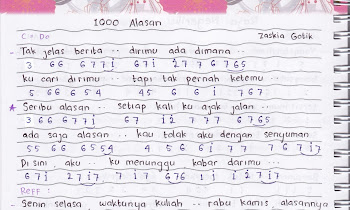 1000 Alasan
C = Do Zaskia Gotik
- Tak jelas berita .. dirimu ada dimana ..
3 66 677i 67 i27 76765
ku cari dirimu .. tapi tak pernah ketemu ..
5 66 654 45 6 6i 767
* Seribu alasan .. setiap kali ku ajak jalan ..
3 66 677i 67 i2 777 6765
ada saja alasan .. kau tolak aku dengan senyuman
55 66 6554 4 56 6i 77 767i7
Di sini , aku .. ku menunggu kabar darimu ...
67i 27i7 7i7 676 1i i27i7
Reff :
- Senin selasa waktunya kuliah .. rabu kamis alasannya